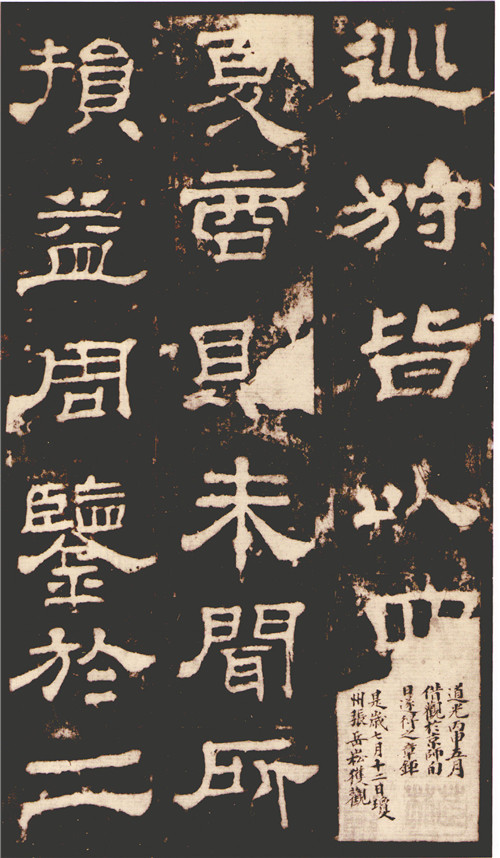 巡狩皆以四
夏商則未聞所
損益周鑒於二
道光丙申五月
借觀於京師旬
日付之章鉅
是歲七月十二日瓊
州張岳崧獲觀